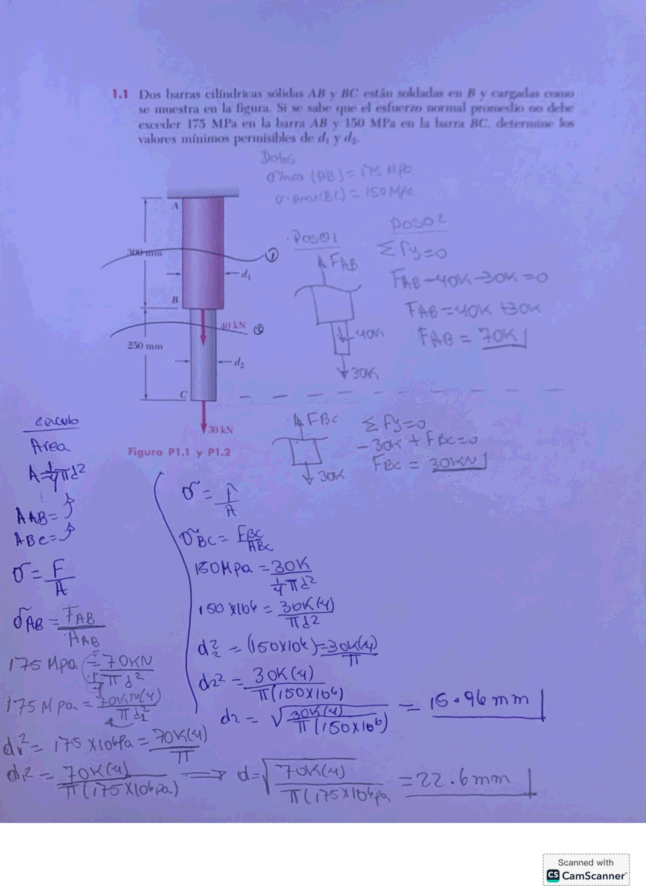 1.1 Dos barras cilíndricas sólidas AB y BC están soldadas en B y cargadas como
se muestra en la figura. Si se sabe que el esfuerzo normal promedio no debe
exceder 175 MPa en la barra AB y 150 MPa en la barra BC, determine los
valores mínimos permisibles de d₁ y d₂.
Datos
σ max (AB) = 175 MPa.
σ max (BC) = 150 MPa
A
300 mm
d₁
B
40 kN
250 mm
d₂
C
30 kN
Figura P1.1 y P1.2
①
②
Paso1
FAB
40K
30K
Paso2
Σfy=0
FAB-40K-30K=0
FAB=40K+30K
FAB = 70K
FBC
30K
Σfy=0
-30K+FBC=0
FBC = 30KN
circulo
Area
A=1/4πd²
AAB=
ABC=
σ=F/A
σAB=FAB/AAB
175 MPa=70KN/1/4πd²
175 MPa=70KN(4)/πd₁²
d₁²=175x10⁶Pa=70K(4)/π
d₁²=70K(4)/π(175x10⁶Pa)
d=√70K(4)/π(175x10⁶Pa =22.6mm
σ=F/A
σBC=FBC/ABC
150MPa=30K/1/4πd²
150x10⁶=30K(4)/πd²
d₂²=(150x10⁶)=30K(4)/π
d₂²=30K(4)/π(150x10⁶)
d₂=√30K(4)/π(150x10⁶) =15.96mm
Scanned with
CS CamScanner